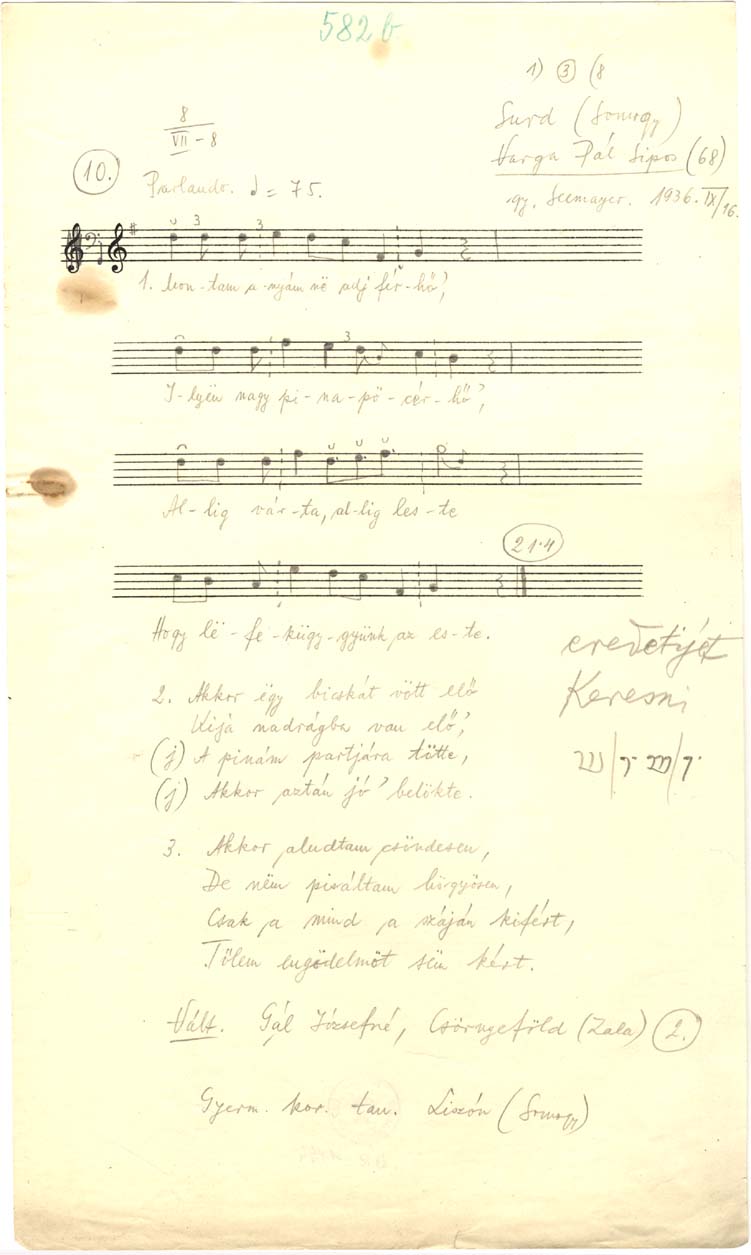 582 b
1) ③ (8
8
VII – 8
Surd (Somogy)
Varga Pál Sipos (68)
gy. Seemayer. 1936. IX/16.
10.
Parlando. = 75.
3 3
1. Mon-tam a-nyám në adj fér-hő',
3
I-lyën nagy pi-na-pö-cér-hő',
Al-lig vár-ta, al-lig les-te
21.4
Hogy lë-fe-kügy-gyünk az es-te.
eredetijét
Keresni
2. Akkor ëgy bicskát vött elő
Kijá nadrágba van elő',
(j) A pinám partjára tötte,
(j) Akkor aztán jó' belökte.
3. Akkor aludtam csöndesen,
De nëm pisáltam börgyösen,
Csak a mind a száján kifért,
Tőlem engödelmöt sëm kért.
Vált. Gál Józsefné, Csörnyeföld (Zala) 2.
Gyerm. kor. tan. Liszón (Somogy)